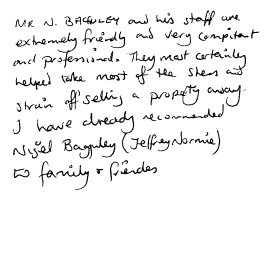 MR N. BAGULEY and his staff are
extremely friendly and very competant
and professional. They most certainly
helped take most of the stress and
strain off selling a property away.
I have already recommended
Nigel Baguley (Jeffrey Normie)
to family + friends